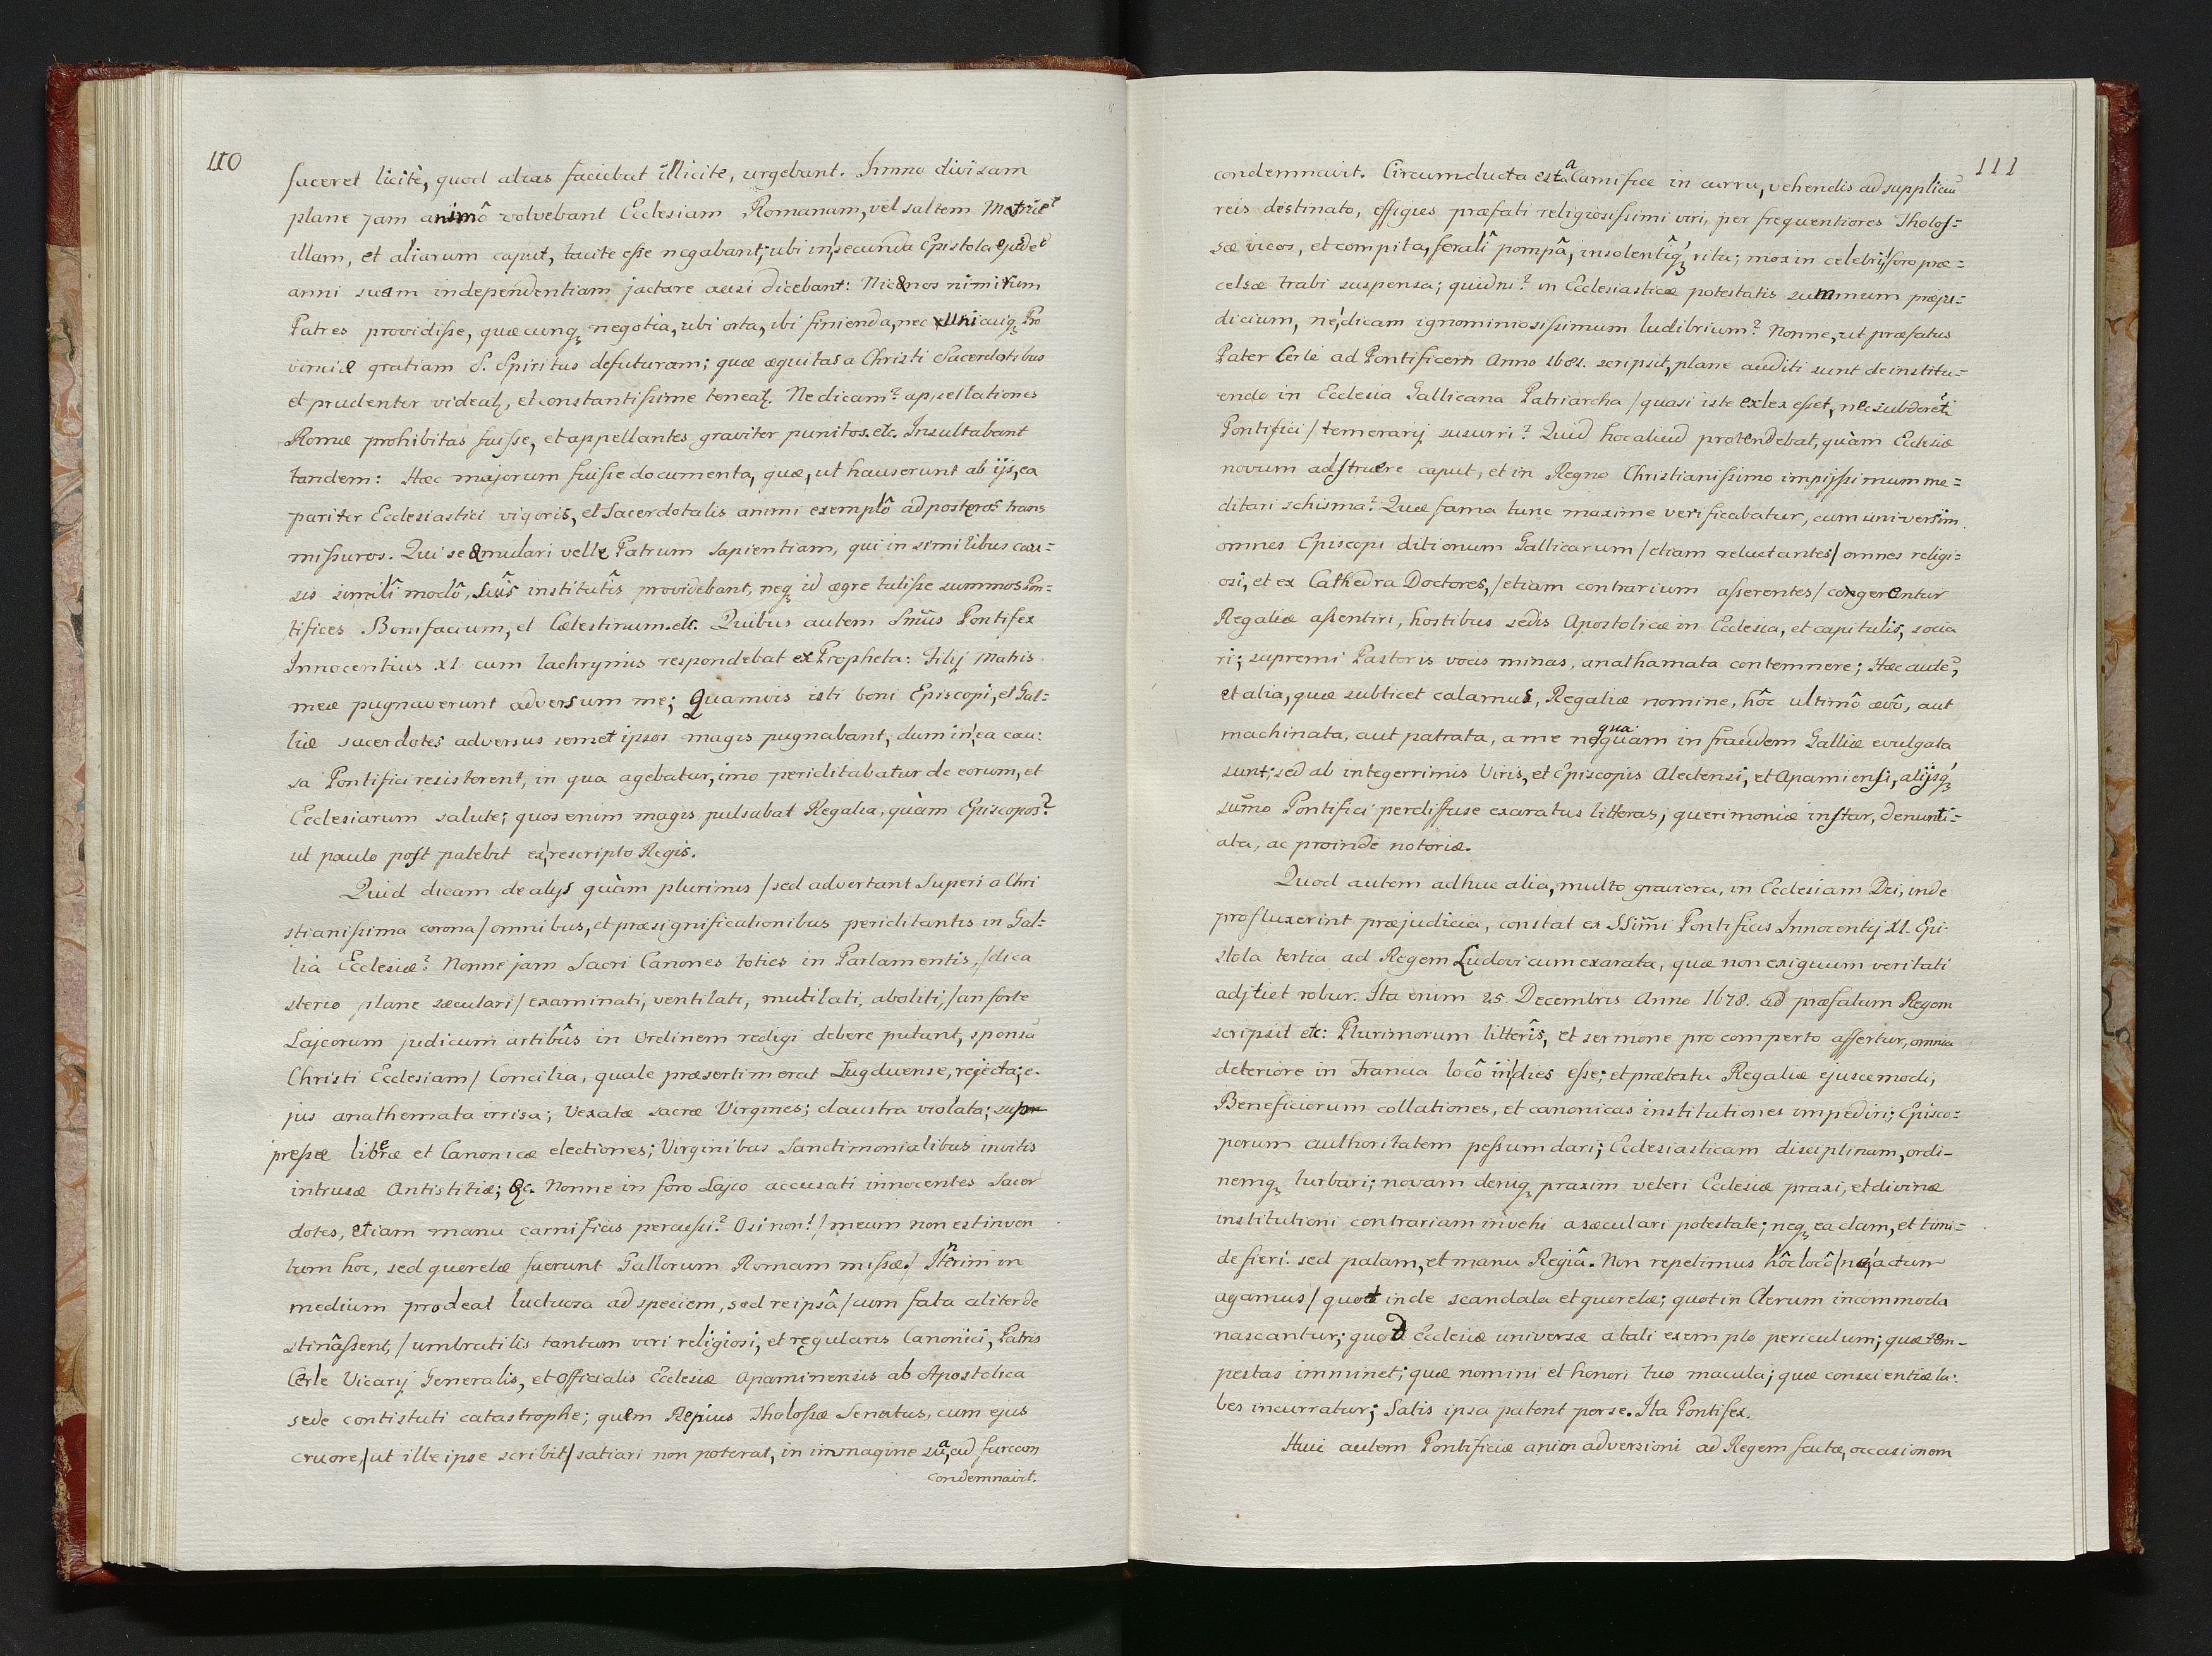 110
faceret licitè, quod alias faciebat illicite, urgebant. Immo divisam
plane jam animô volvebant Ecclesiam Romanam, vel saltem Matricē
illam, et aliarum caput, tacite eſse negabant; ubi in secunda Epistola ejusdē
anni suam independentiam jactare ausi dicebant: Nicænos nimirum
Patres providiſse, quæcunq₃ negotia, ubi orta, ibi finienda, nec unicuiq₃ Pro
vinciæ gratiam S. Spiritus defuturam; quæ æquitas a Christi Sacerdotibus
et prudenter videat᷑, et constantiſsime teneat᷑. Ne dicam? appellationes
Romæ prohibitas fuiſse, et appellantes graviter punitos. etc. Insultabant
tandem: Hæc majorum fuiſse documenta, quæ, ut hauserunt ab ijs, ea
pariter Ecclesiastici vigoris, et Sacerdotalis animi exemplô ad posteros trans
miſsuros. Qui se æmulari velle Patrum sapientiam, qui in similibus cau-
sis similî modô, suîs institutîs providebant, neq₃ id ægre tuliſse summos Pon-
tifices Bonifacium, et Cælestinum. etc. Quibus autem Smūs Pontifex
Innocentius XI. cum lachrymis respondebat ex Propheta: Filij Matris
meæ pugnaverunt adversum me; Quamvis isti boni Episcopi, et Gal-
liæ sacerdotes adversus semet ipsos magis pugnabant, dum in ea cau-
sa Pontifici resisterent, in qua agebatur, imo periclitabatur de eorum, et
Ecclesiarum salute; quos enim magis pulsabat Regalia, quàm Episcopos?
ut paulo post patebit ex rescripto Regis.
Quid dicam de alijs quàm plurimis / sed advertant Superi a Chri
stianiſsima corona / omnibus, et præsignificationibus periclitantis in Gal-
lia Ecclesiæ? Nonne jam Sacri Canones toties in Parlamentis, / dica
sterio plane sæculari / examinati, ventilati, mutilati, aboliti; / an forte
Lajcorum judicum artibûs in Ordinem redigi debere putant, sponsā
Christi Ecclesiam / Concilia, quale præsertim erat Lugduense, rejecta; e-
jus anathemata irrisa; Vexatæ sacræ Virgines; claustra violata; sup
preſsæ liberæ et Canonicæ electiones; Virginibus Sanctimonialibus invitis
intrusæ Antistitiæ; &c. Nonne in foro Lajco accusati innocentes Sacer
dotes, etiam manu carnificis percuſsi? O si non! / meum non est inven
tum hoc, sed querelæ fuerunt Gallorum Romam miſsæ. / Interim in
medium prodeat luctuosa ad speciem, sed re ipsâ / cum fata aliter de
stinâſsent, / umbratilis tantum viri religiosi, et regularis Canonici, Patris
Cerle Vicarij Generalis, et Officialis Ecclesiæ Apaminensis ab Apostolica
sede contistuti catastrophe; quem Regius Tholoſsæ Senatus, cum ejus
cruore, / ut ille ipse scribit / satiari non poterat, in immagine sua, ad furcam
condemnavit.
111
condemnavit. Circumducta est a Carnifice in curru, vehendis ad suppliciū
reis destinato, effigies præfati religiosiſsimi viri, per frequentiores Tholoſ-
sæ vicos, et compita, feralî pompâ, insolentîq₃ ritu; mox in celebri foro præ-
celsæ trabi suspensa; quidni? in Ecclesiasticæ potestatis summum præju-
dicium, ne dicam ignominiosiſsimum ludibrium? Nonne, ut præfatus
Pater Cerle ad Pontificem Anno 1681. scripsit, plane auditi sunt de institu-
endo in Ecclesia Gallicana Patriarcha / quasi iste exlex eſset, nec subderet᷑
Pontifici / temerarij susurri? Quid hoc aliud protendebat, quàm Ecclesiæ
novum adſtruere caput, et in Regno Christianiſsimo impijſsimum me-
ditari schisma? Quæ fama tunc maxime verificabatur, cum universim
omnes Episcopi ditionum Gallicarum / etiam reluctantes / omnes religi-
osi, et ex Cathedra Doctores, / etiam contrarium aſserentes / cogerentur
Regaliæ aſsentiri, hostibus sedis Apostolicæ in Ecclesia, et capitulis, socia
ri; supremi Pastoris vocis minas, anathamata contemnere; Hæc autē,
et alia, quæ subticet calamus, Regaliæ nomine, hôc ultimô ævô, aut
machinata, aut patrata, a me nequaquam in fraudem Galliæ evulgata
sunt; sed ab integerrimis Viris, et Episcopis Alectensi, et Apamiensi, alijsq₃
sūmo Pontifici perdiffuse exaratas litteras, querimoniæ inſtar, denunti-
ata, ac proinde notoria.
Quod autem adhuc alia, multo graviora, in Ecclesiam Dei, inde
profluxerint præjudicia, constat ex SSim̄i Pontificis Innocentij XI. Epi-
stola tertia ad Regem Ludovicum exarata, quæ non exiguum veritati
adjtiet robur. Ita enim 25. Decembris Anno 1678. ad præfatum Regem
scripsit etc: Plurimorum litterîs, et sermone pro comperto affertur, omnia
deteriore in Francia locô in dies eſse; et prætextu Regaliæ ejuscemodi,
Beneficiorum collationes, et canonicas institutiones impediri; Episco-
porum authoritatem peſsum dari; Ecclesiasticam disciplinam, ordi-
nemq₃ turbari; novam deniq₃ praxim veteri Ecclesiæ praxi, et divinæ
institutioni contrariam invehi a sæculari potestate; neq₃ ea clam, et timi-
de fieri: sed palam, et manu Regiâ. Non repetimus hôc locô / ne actum
agamus / quot inde scandala et querelæ; quot in Clerum incommoda
nascantur; quod Ecclesiæ universæ a tali exemplo periculum; quæ tem-
pestas imminet; quæ nomini et honori tuo macula; quæ conscientiæ la-
bes incurratur; Satis ipsa patent per se. Ita Pontifex.
Huic autem Pontificiæ animadversioni ad Regem factæ, occasionem